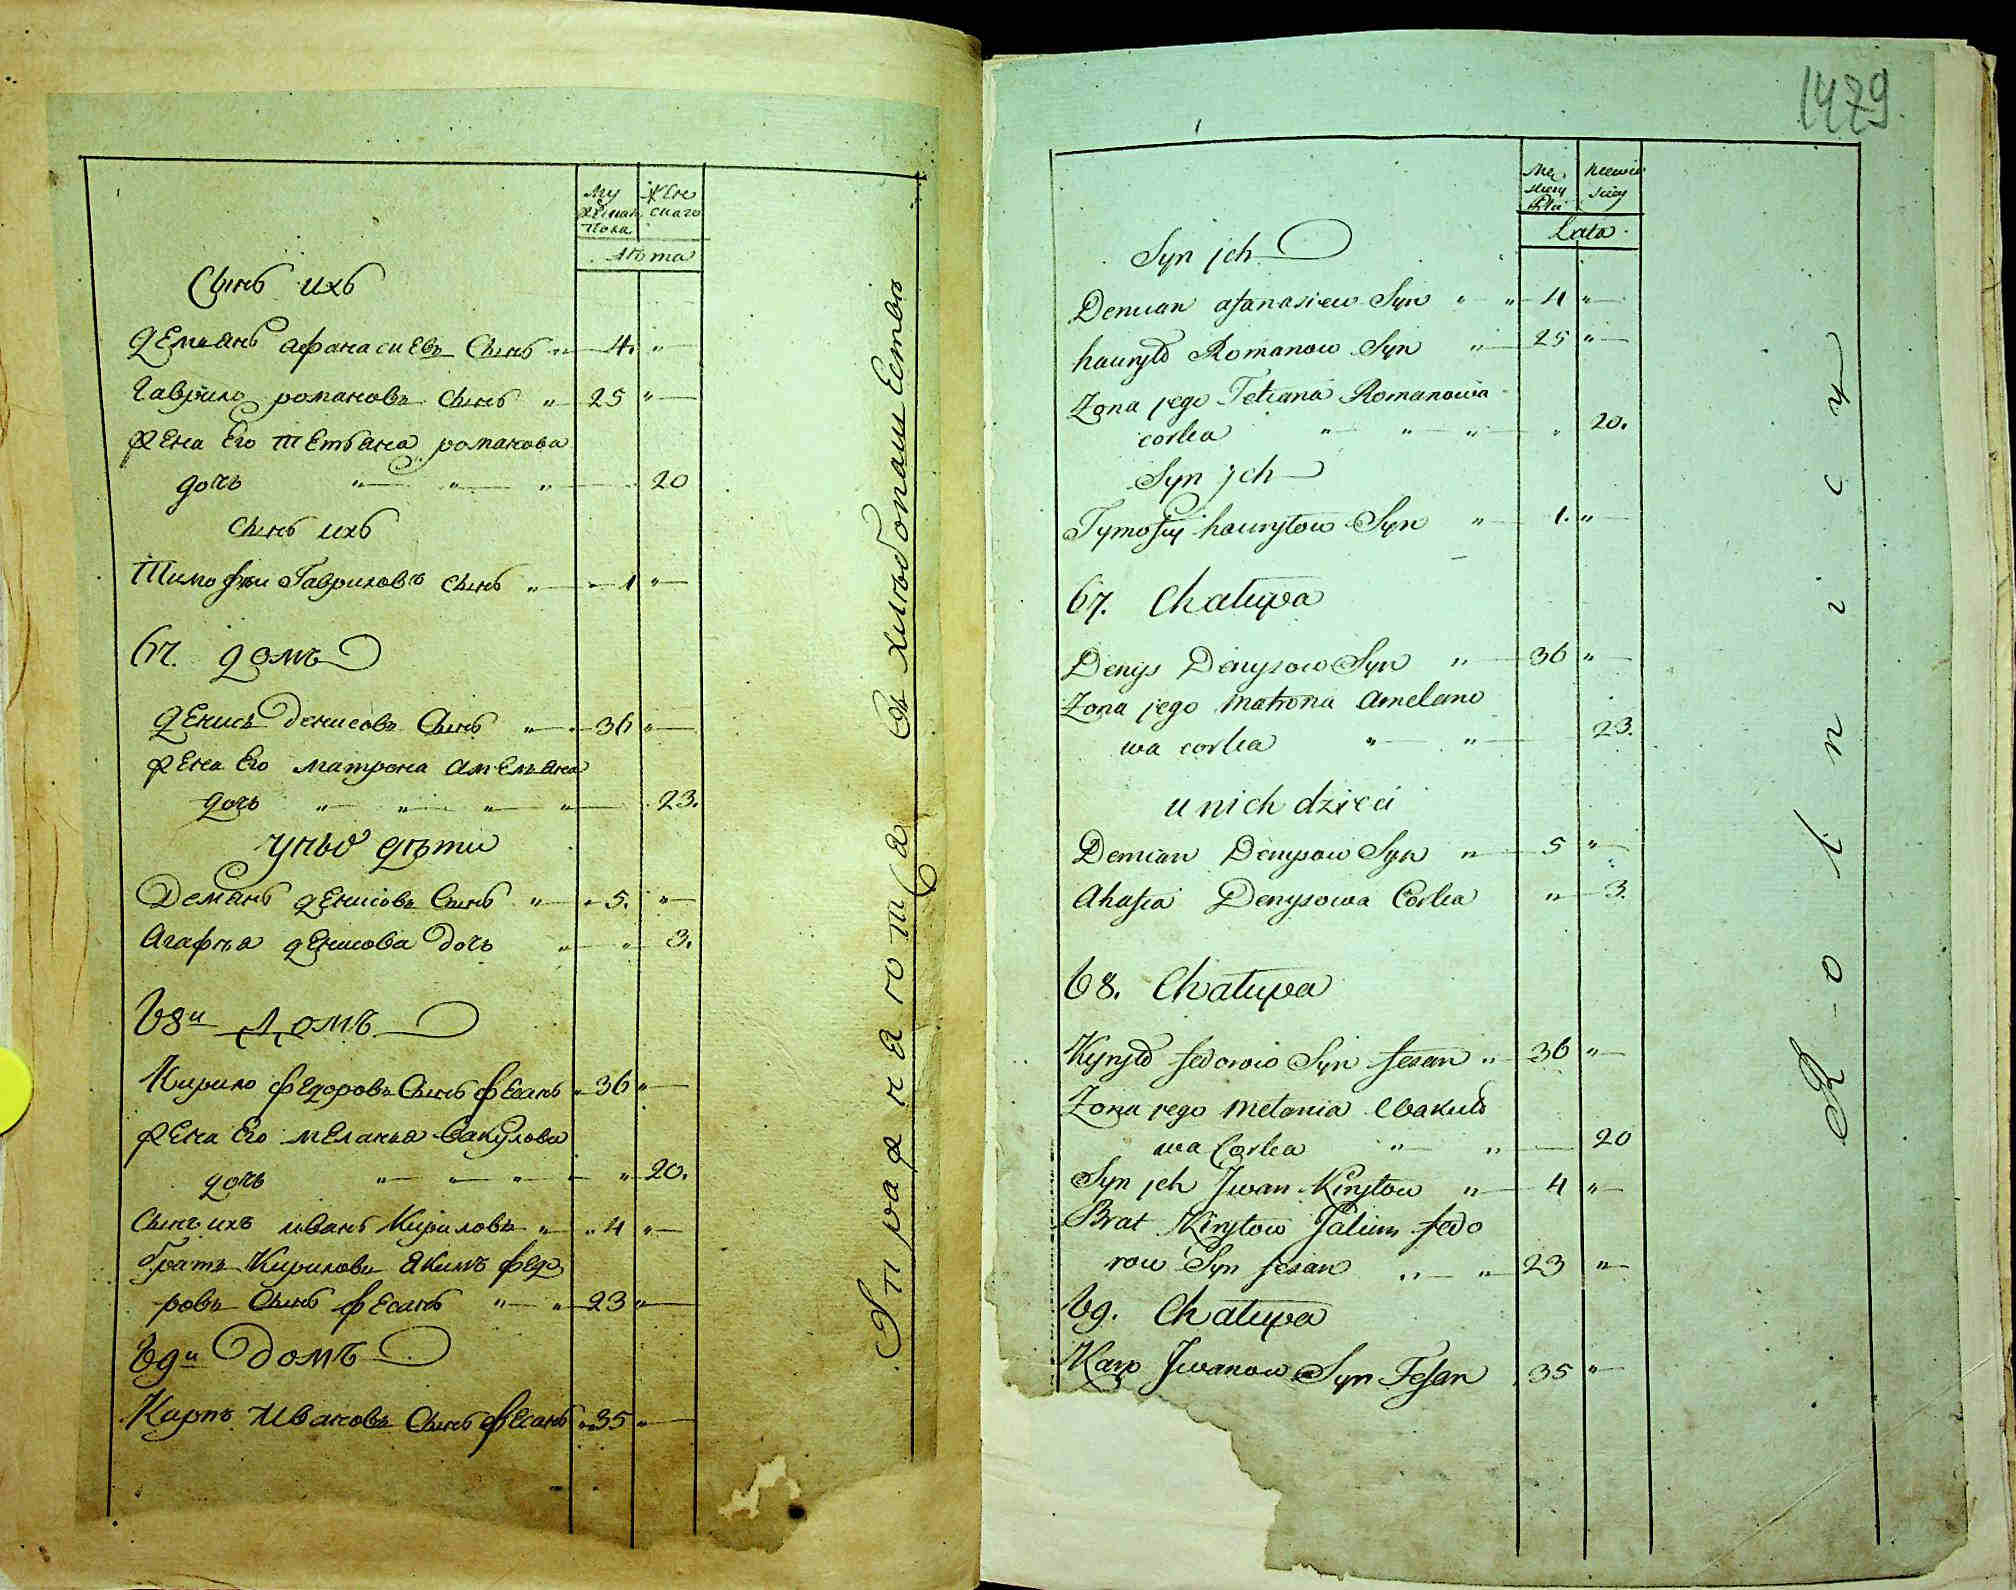 Му
жеска
Пола
Жен
скаго
Лѣта
Сынъ ихъ
Демьянъ Афанасиевъ Сынъ „ 4. „
Гаврило романовъ Сынъ „ 25 „
Жена Его Тетьяна романова
дочь „ „ „ 20
Сынъ ихъ
Тимофѣи Гавриловъ Сынъ „ 1 „
67. домъ
Денисъ Денисовъ Сынъ „ 36 „
Жена Его Матрона Амельяна
дочь „ „ „ „ 23.
дѣти
Демянъ Денисовъ Сынъ „ 5. „
Агафья Денисова Дочь „ „ 3.
68и Домъ
Кирило Федоровъ Сынъ Фесанъ „ 36 „
Жена Его Меланья Вакулова
дочь „ „ „ „ 20.
Сынъ ихъ иванъ Кириловъ „ „ 4 „
братъ Кириловъ Якимъ Федо
ровъ Сынъ Фесанъ „ „ 23 „
69и Домъ
Карпъ Ивановъ Сынъ Фесанъ „ 35 „
Упражняются въ хлѣбопашествѣ
1479
Mę
skiey
Płci
niewie
sciey
Lata
Syn jch
Demian afanasiew Syn „ „ 4 „
hauryło Romanow Syn „ 25 „
Zona jego Tetiana Romanowa
corka „ „ „ „ 20.
Syn jch
Tymofiy hauryłow Syn „ 1. „
67. Chałupa
Denys Denysow Syn „ 36 „
Zona jego Matrona Amelano
wa corka „ „ 23.
u nich dzieci
Demian Denysow Syn „ 5 „
Ahafia Denysowa Corka „ 3.
68. Chałupa
Kyryło fedorow Syn fesan „ 36 „
Zona jego Melania Wakuło
wa Corka „ „ 20
Syn jch Jwan Kiryłow „ 4 „
Brat Kiryłow Jakim fedo
row Syn fesan „ „ 23 „
69. Chałupa
Karp Jwanow Syn Fesan 35 „
Rolnicy